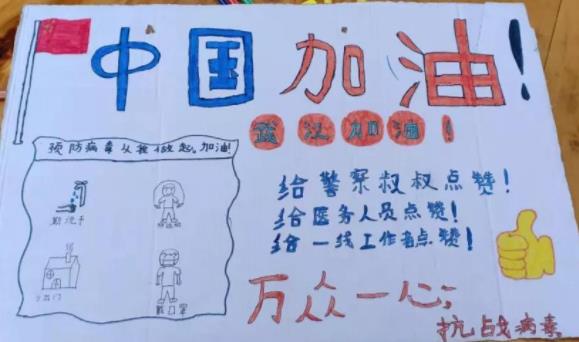 中国加油!
武汉加油!
预防病毒从我做起,加油!
勤洗手
戴口罩
给警察叔叔点赞!
给医务人员点赞!
给一线工作者点赞!
万众一心;
抗战病毒